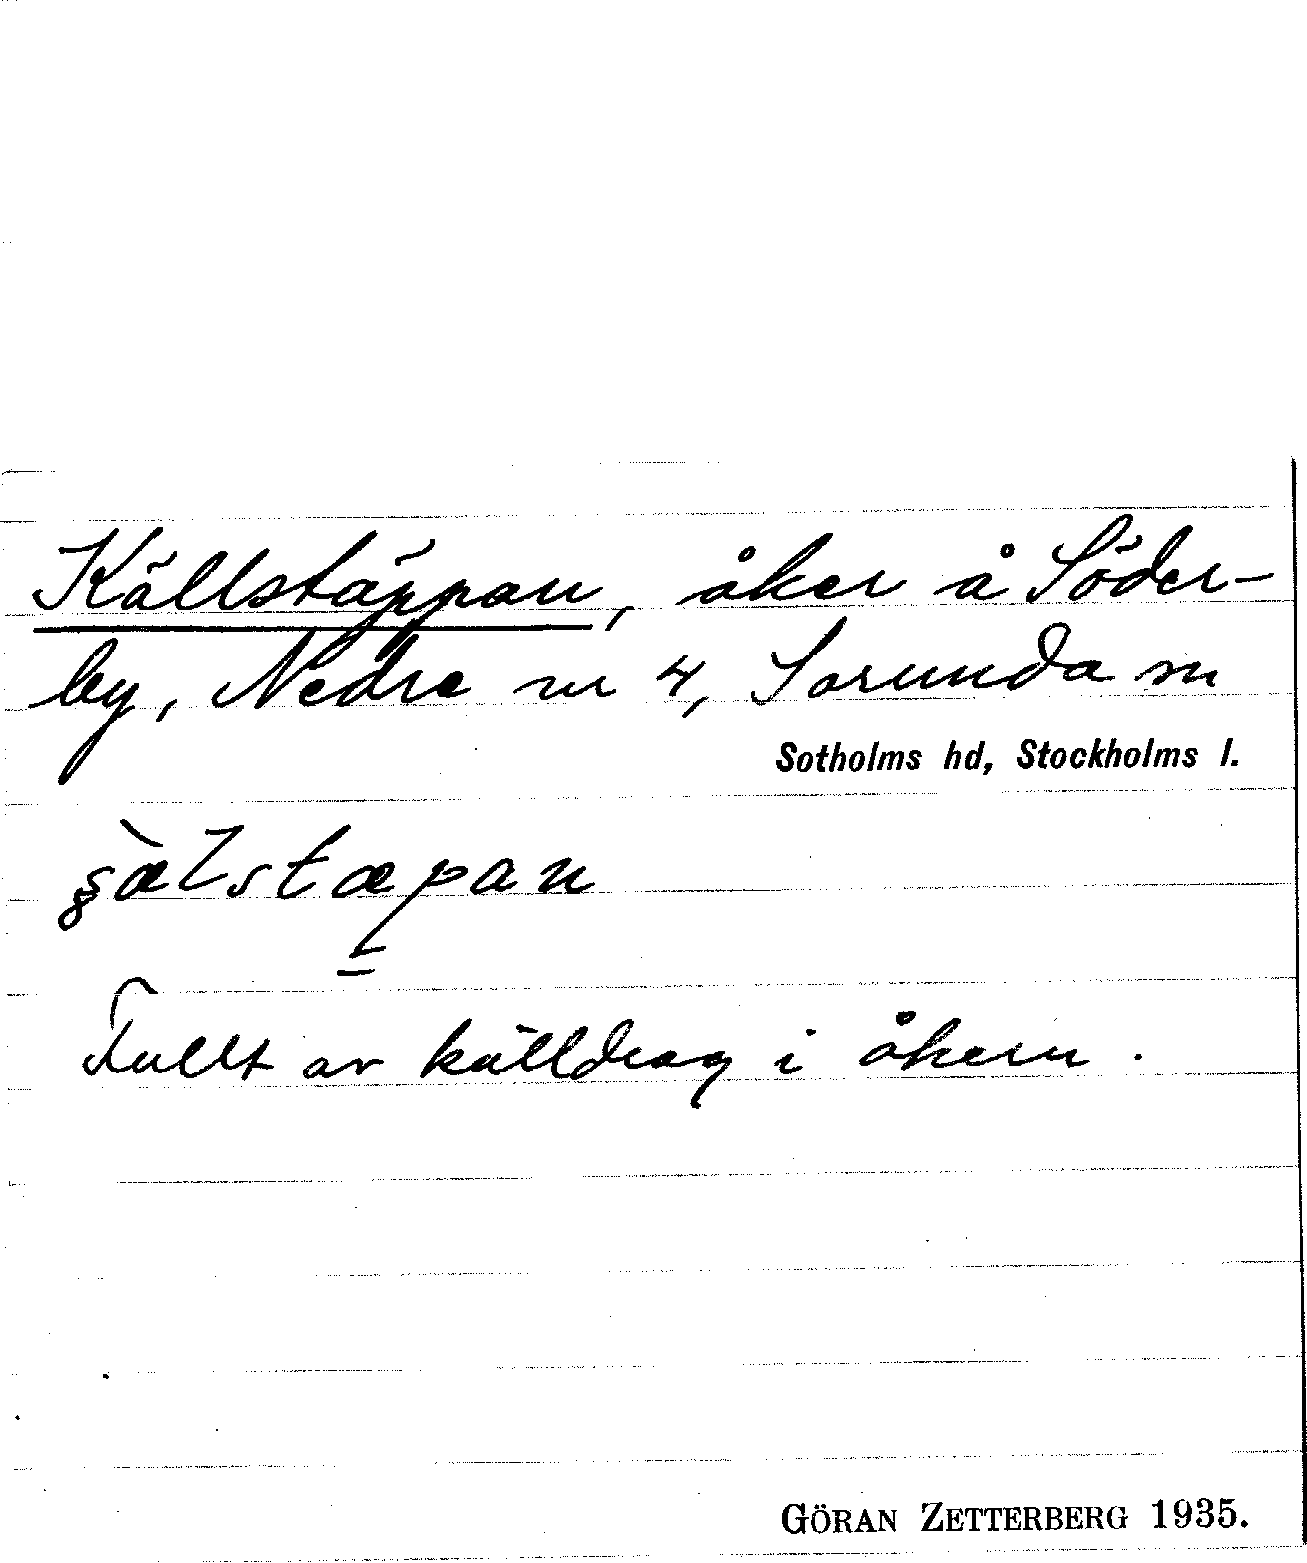 Källstäppan, åker å Söder-
by, Nedre nr 4, Sorunda sn
Sotholms hd, Stockholms l.
ʂæ̀lstæpan
Fullt av källdrag i åkern.
GÖRAN ZETTERBERG 1935.